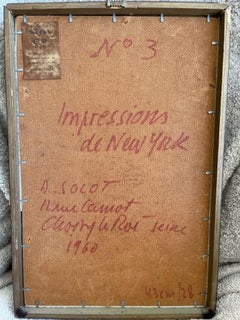 No 3
Impressions
de New York
A. SOCOT
Rue Carnot
Choisy le Roi Seine
1960
43cm/28